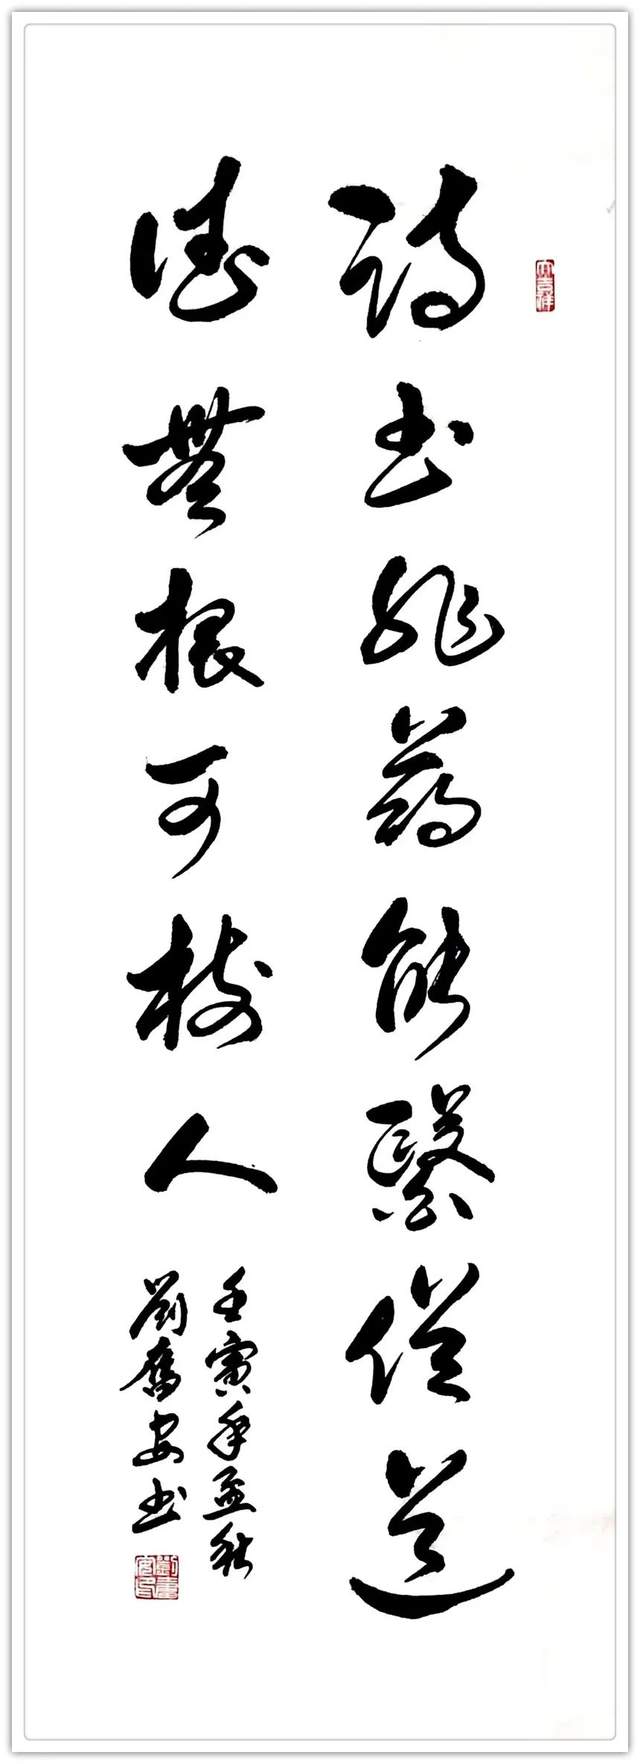 大吉祥
詩書非藥能醫俗道
德無根可樹人
壬寅年孟秋
劉奮安書